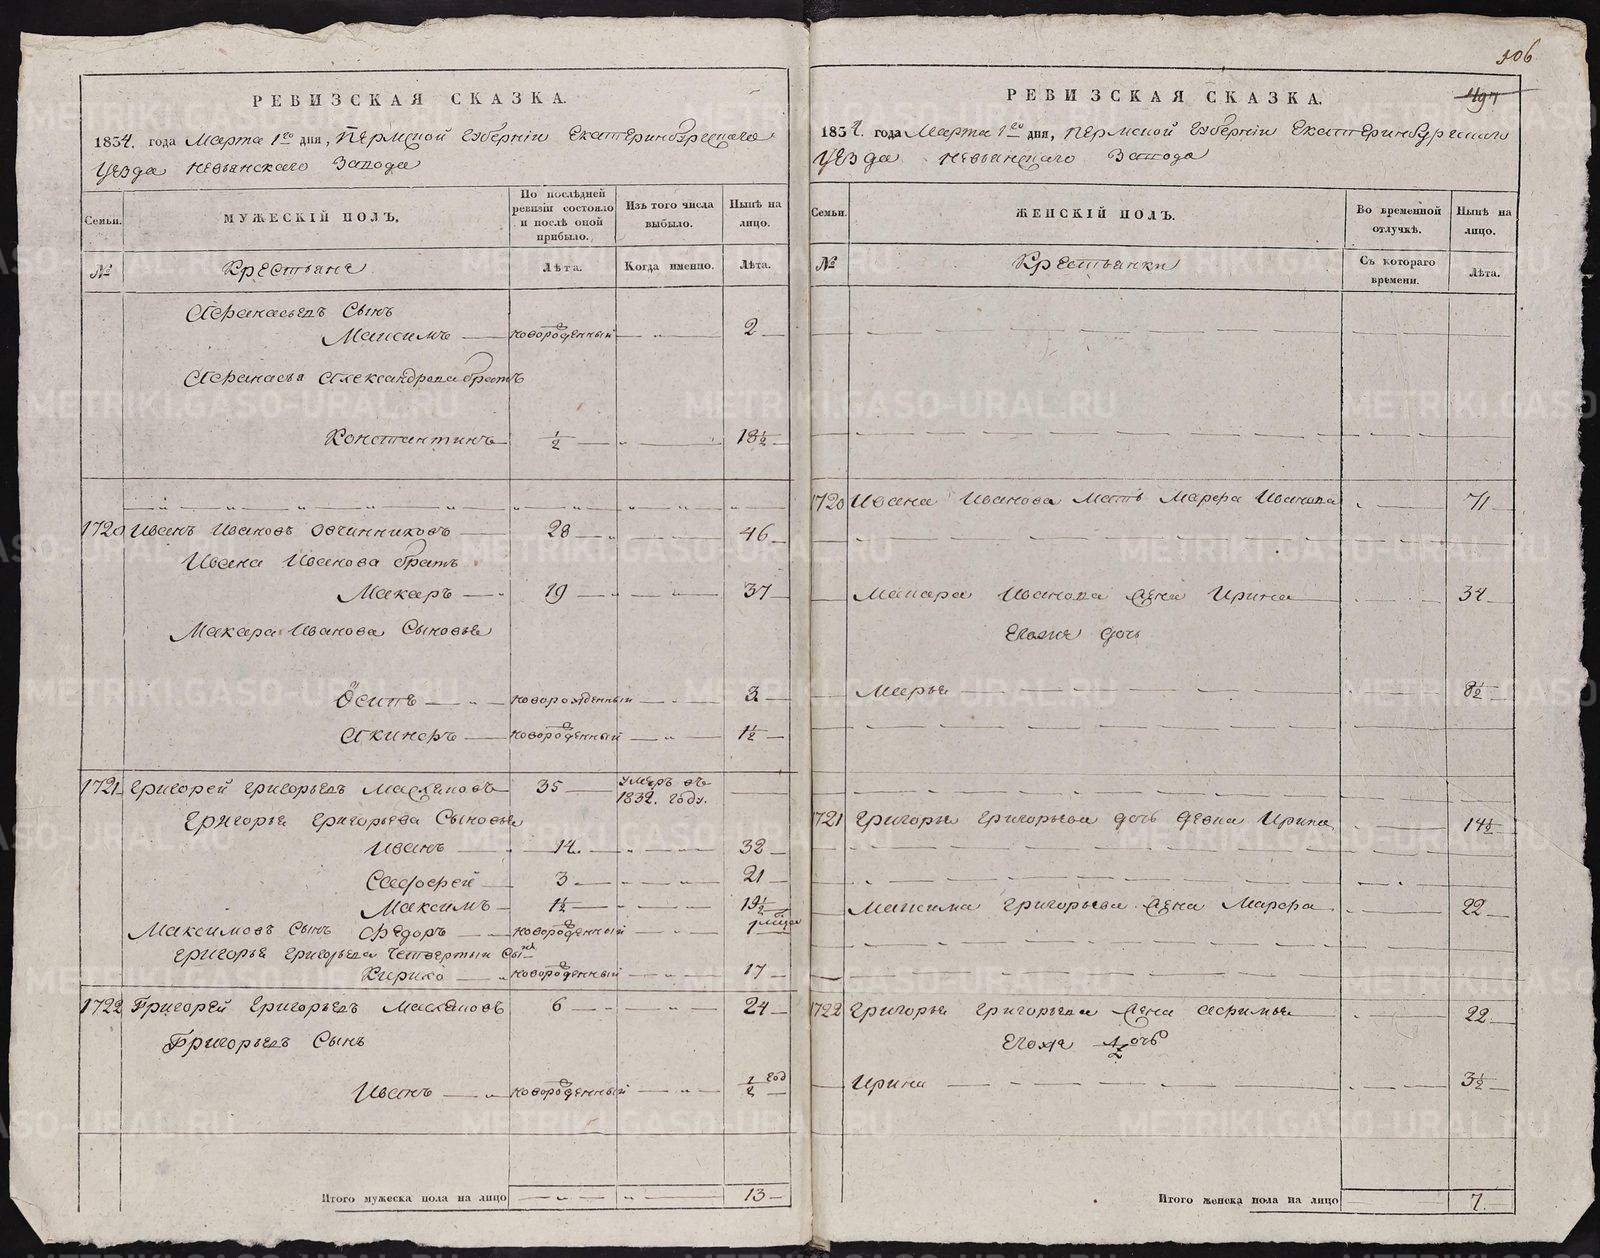 РЕВИЗСКАЯ СКАЗКА.
1834. года Марта 1го дня, Пермской губернiи Екатеринбургскаго
уезда Невьянскаго Завода
Семьи.
МУЖЕСКIЙ ПОЛЪ,
По послѣдней ревизiи состояло и послѣ оной прибыло.
Изъ того числа выбыло.
Нынѣ на лицо.
№
Крестьяне
Лѣта.
Когда именно.
Лѣта.
Афанасьевъ Сынъ
Максимъ — новорожденный — 2
Афанасья Александрова братъ
Константинъ ½ — 18½
1720 Иванъ Ивановъ Овчинниковъ 28 — 46
Ивана Иванова братъ
Макаръ — 19 — 37
Макара Иванова Сыновья
Осипъ — новорожденный — 3
Акинфъ — новорожденный — 1½
1721 Григорей Григорьевъ Масленовъ 35 — умеръ въ 1832. году.
Григорья Григорьева Сыновья
Иванъ — 14. — 32
Савфосрей — 3 — 21
Максимъ — 1½ — 19½
Максимовъ Сынъ Федоръ — новорожденный — 1
Григорья Григорьева четвертый Сынъ
Кирико — новорожденный — 17
1722 Григорей Григорьевъ Масленовъ 6 — 24
Григорьевъ Сынъ
Иванъ — новорожденный — ½ год
Итого мужеска пола на лицо 13
506
497
РЕВИЗСКАЯ СКАЗКА.
1834. года Марта 1го дня, Пермской губернiи Екатеринбургскаго
уезда Невьянскаго Завода
Семьи.
ЖЕНСКIЙ ПОЛЪ.
Во временной отлучкѣ.
Нынѣ на лицо.
№
Крестьянки
Съ котораго времени.
Лѣта.
1720 Ивана Иванова Мать Марфа Иванова 71
Макара Иванова жена Ирина 34
Егоже дочь
Марья 8½
1721 Григорья Григорьева дочь девка Ирина 14½
Максима Григорьева жена Марфа 22
1722 Григорья Григорьева жена Афимья 22
Егоже дочь
Ирина 3½
Итого женска пола на лицо 7.
METRIKI.GASO-URAL.RU